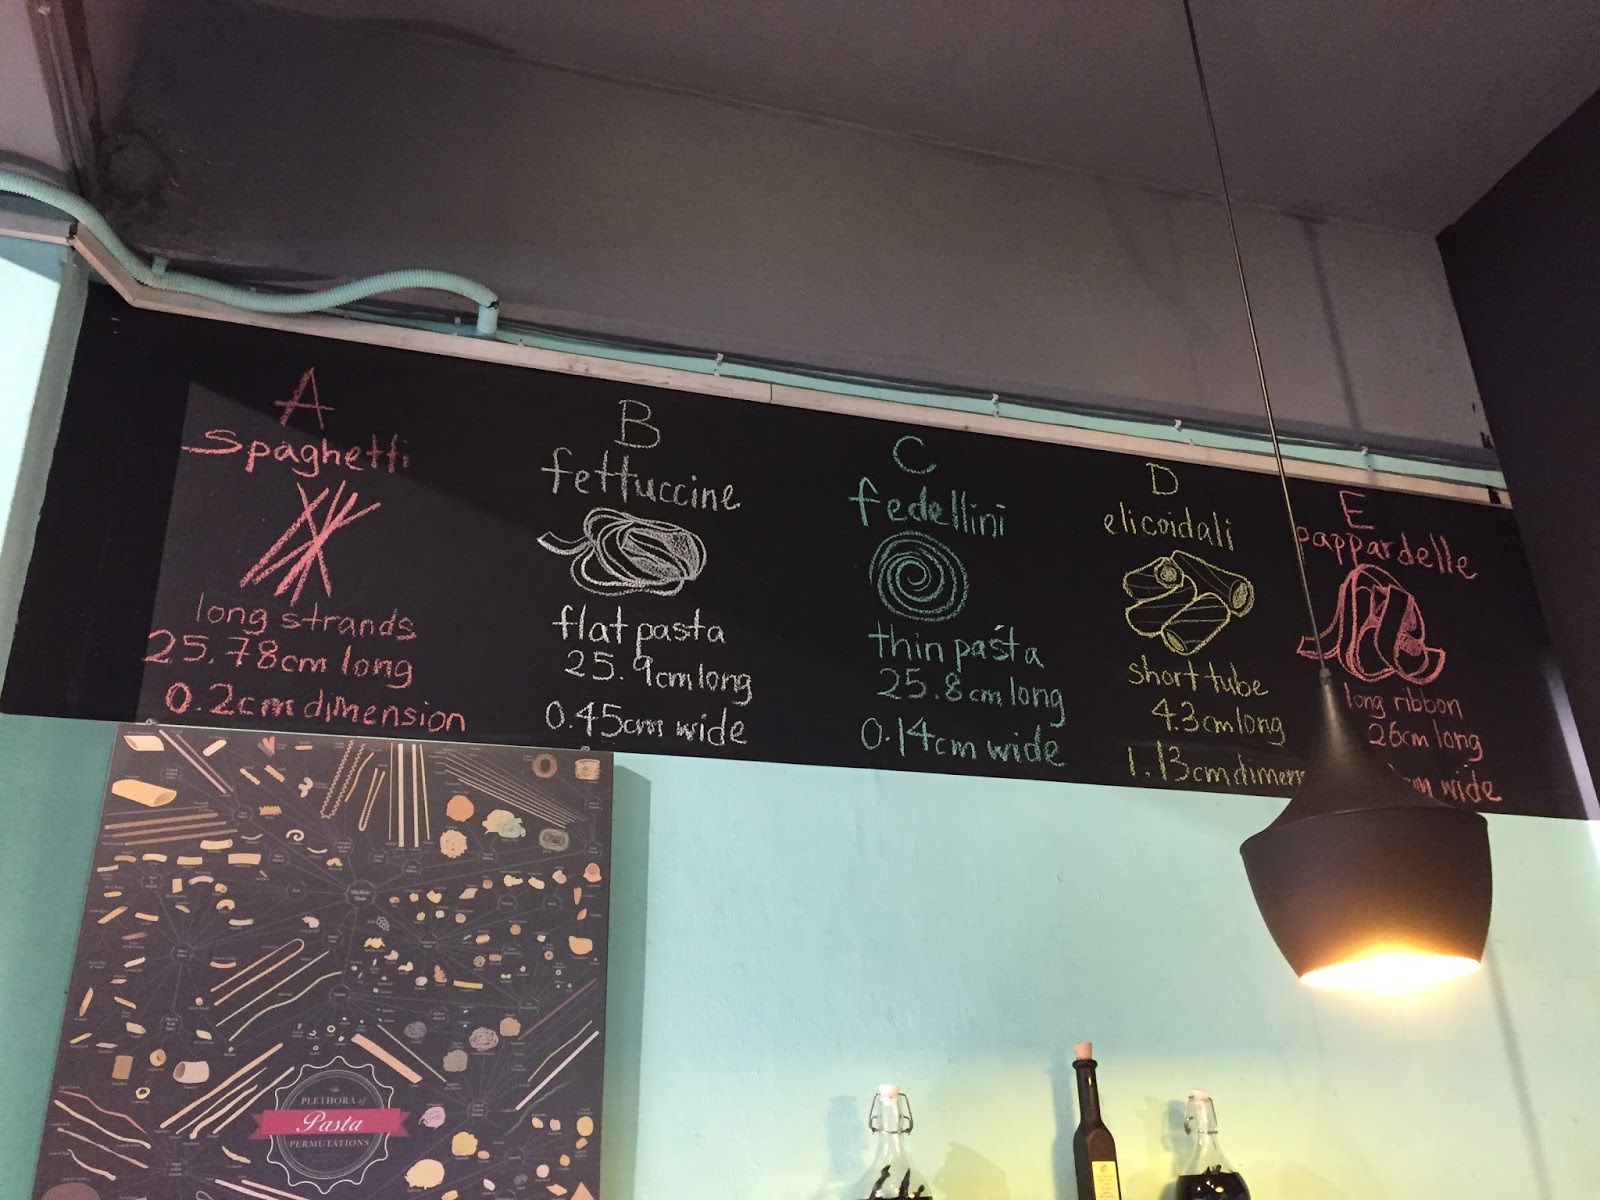 A
spaghetti
long strands
25.78cm long
0.2cm dimension
B
fettuccine
flat pasta
25.9cm long
0.45cm wide
C
fedellini
thin pasta
25.8cm long
0.14cm wide
D
elicoidali
short tube
4.3cm long
1.13cm dimen
E
pappardelle
long ribbon
26cm long
cm wide
The
PLETHORA of
Pasta
PERMUTATIONS